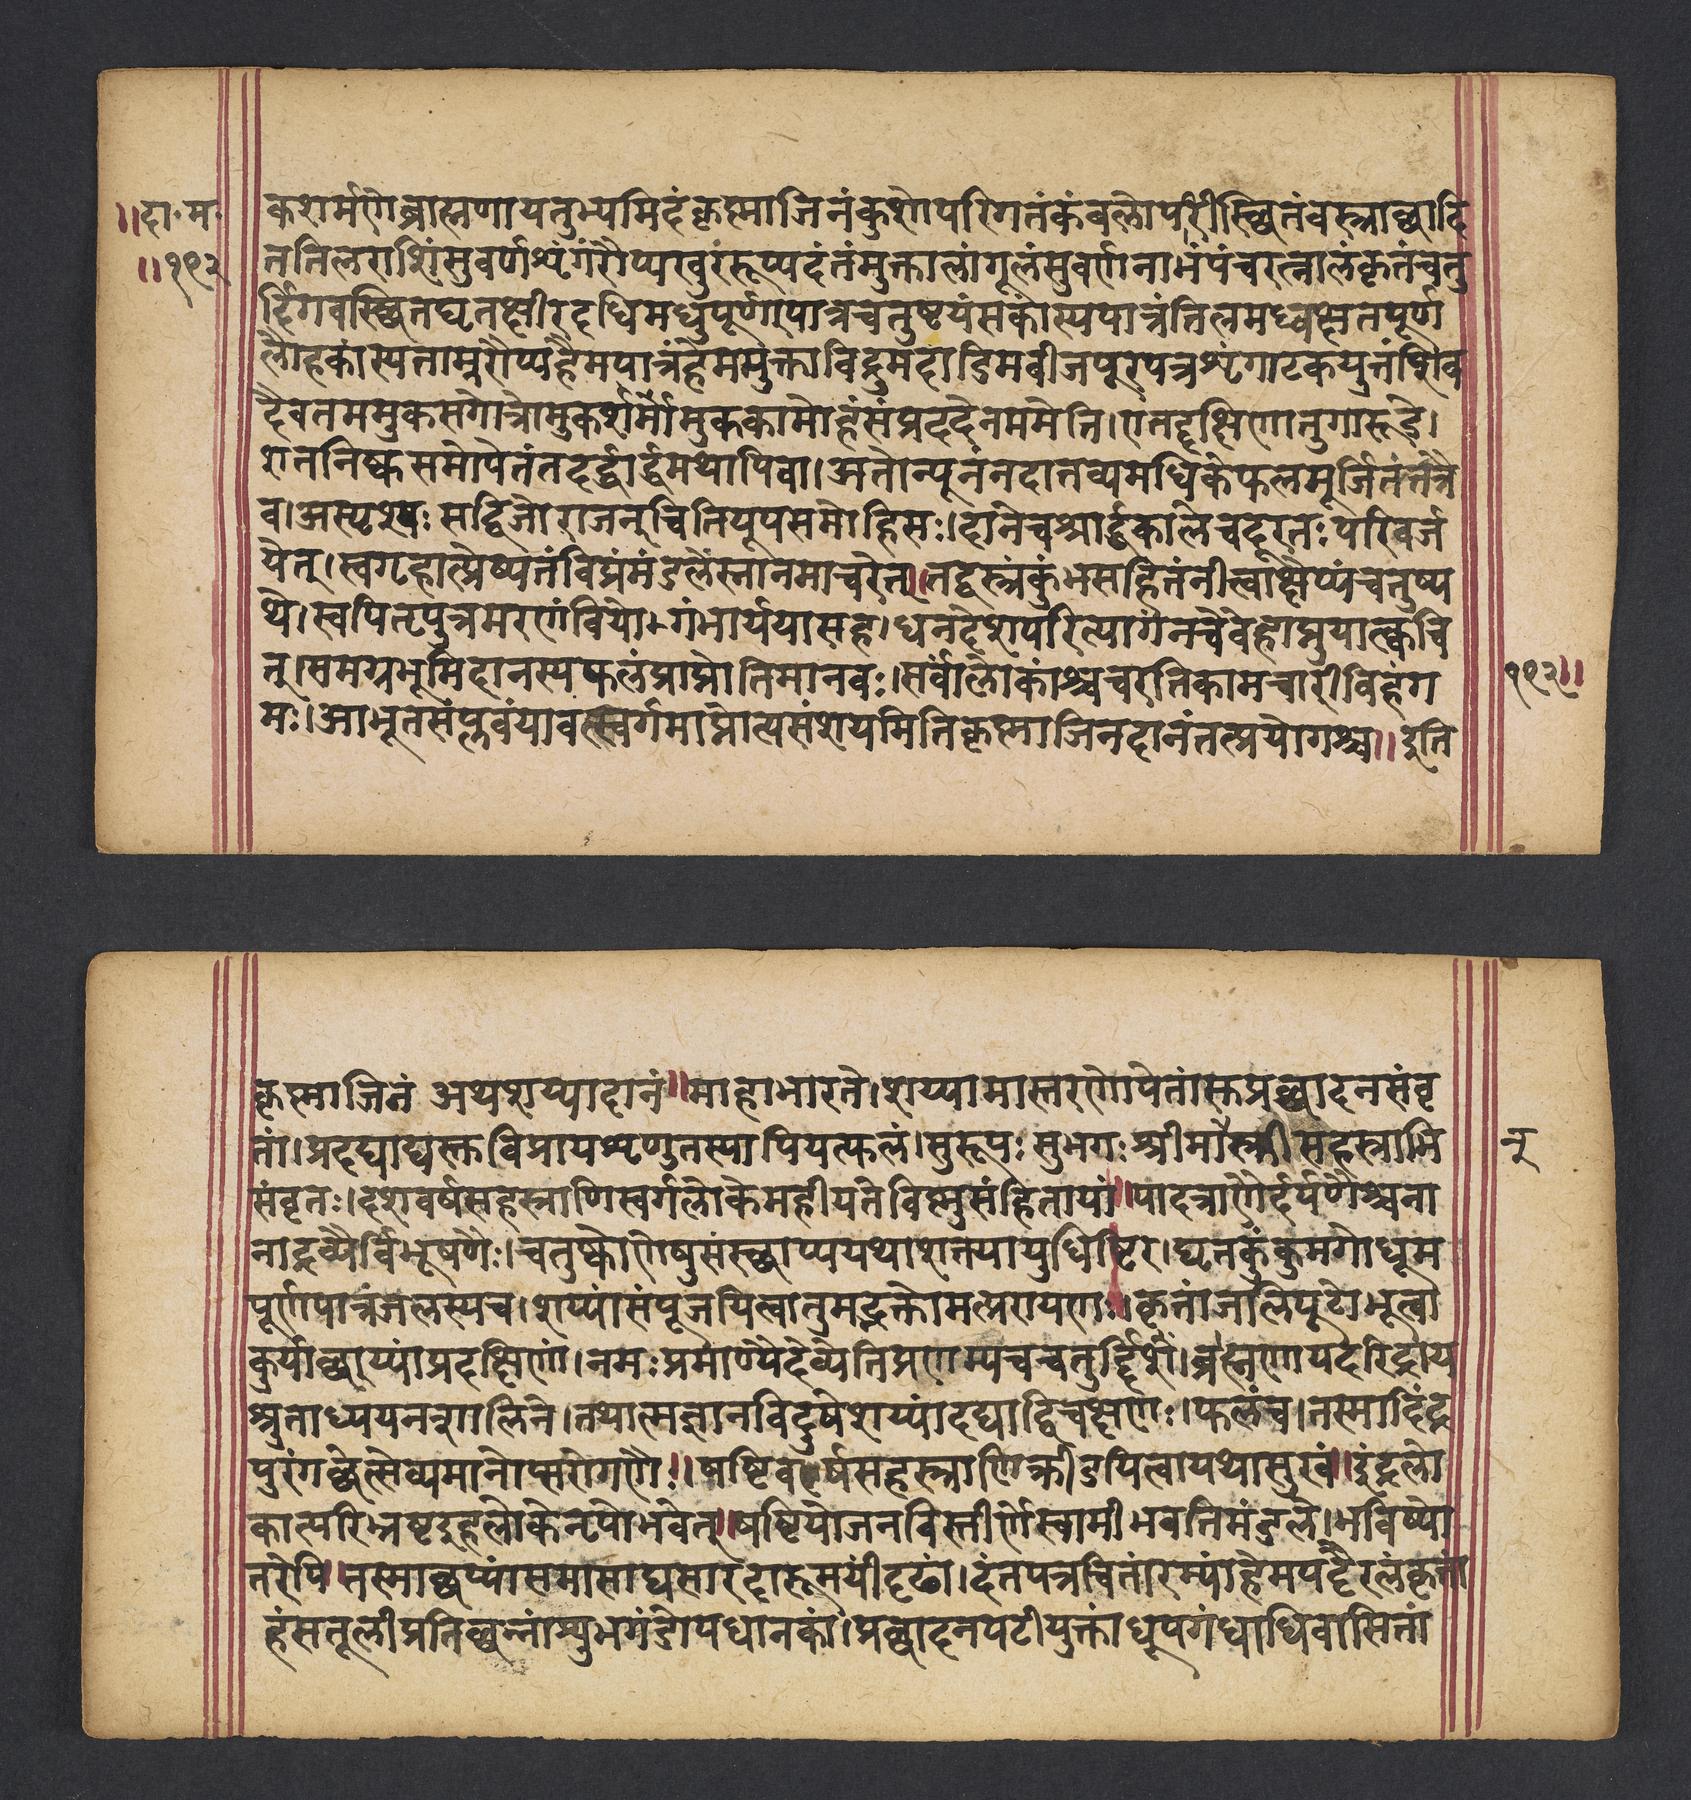 ॥दा॰म॰
॥१९२
कशर्मणेब्राह्मणायतुभ्यमिदंकृष्णाजिनंकुशोपरिगतंकंबलोपरीस्थितंवस्त्राच्छादि
ततिलराशिंसुवर्णशृंगंरौप्यखुरंरूप्यदंतंमुक्तालांगूलंसुवर्णनाभंपंचरत्नालंकृतंचतु
र्द्दिगवस्थितघृतक्षीरदधिमधुपूर्णापात्रचतुष्टयंसकांस्यपात्रंतिलमध्वक्षतपूर्ण
लौहकांस्यताम्ररौप्यहैमपात्रंहेममुक्ताविद्रुमदाडिमबीजपूरपत्रशृंगाटकयुतंशिव
दैवतममुकसगोत्रोमुकशर्मामुककामोहंसंप्रददेनममेति।एतद्दक्षिणातुगारूडे।
शतनिष्कसमोपेतंतदर्द्धार्द्धमथापिवा।अतोन्यूनंनदातव्यमधिकेफलमूर्जितंतंत्रै
व।अस्पृश्यः सद्विजोराजनुचितियूपसमोहिसः।दानेचश्रार्द्धकालेचदूरतः परिवर्ज
येत्।स्वगृहात्प्रेष्यतंविप्रंमंडलेंस्नानमाचरेत्॥तद्वस्त्रंकुंभसहितंनीत्वाक्षेप्यंचतुष्प
थे।स्वपितृपुत्रमरणंवियो-गंभार्ययासह।धनदेशपरित्यागंनचैवेहाप्नुयात्क्वचि
त्।समग्रभूमिदानस्यफलंप्राप्नोतिमानवः।सर्वांलोकांश्चचरतिकामचारीविहंग
मः।आभूतसंप्लवंयावत्स्वर्गमाप्नोत्यसंशयमितिकृष्णाजिनदानंतत्प्रयोगश्च॥इति
१९२॥
कृष्णाजिनं अथशय्यादानं॥माहाभारते।शय्यामास्तरणोपेतांस्तप्रच्छादनसंवृ
तां।प्रदद्याद्यस्तविप्रायशृणुतस्यापियत्फलं।सुरूपः सुभगः श्रीमांस्त्रीसहस्राभि
तु
संवृतः।दशवर्षसहस्राणिस्वर्गलोकेमहीयतेविष्णुसंहितायां॥पादत्राणैर्दर्पणैश्चना
नाद्रव्यैर्विभूषणैः।चतुष्कोणेषुसंस्थाप्ययथाशतयायुधिष्टिर।घृतकुंकुमगोधूम
पूर्णपात्रंजलस्यच।शय्यांसंपूजयित्वातुमद्भक्तोमत्परायणः।कृतांजलिपूटोभूत्वा
कुर्याच्छय्यांप्रदक्षिणं।नमःप्रमाण्यैदेव्येतिप्रणम्यचचतुर्द्दिशं।ब्रह्मणायदरिद्राय
श्रुताध्ययनशालिने।तथात्मज्ञानविदुषेशय्यांदद्याद्विचक्षणः।फलंच।तस्मादिंद्र
पुरंगच्छेत्सेव्यमानोप्सरोगणैः।षष्टिवर्षसहस्राणिक्रीडयित्वायथासुखं॥इंद्रलो
कात्परिभ्रष्टइहलोकेनृपोभवेत्॥षष्टियोजनविस्तीर्णेस्वामीभवतिमंडले।भविष्यो
तरेपि॥तस्माच्छय्यांसमासाद्यसारदारूमयींदृढां।दंतपत्रचितांरम्यांहैमपट्टैरलंकृतां
हंसतूलीप्रतिच्छन्नांशुभगंडोपधानकां।प्रच्छादनपटीयुक्तांधूपगंधाधिवासितां